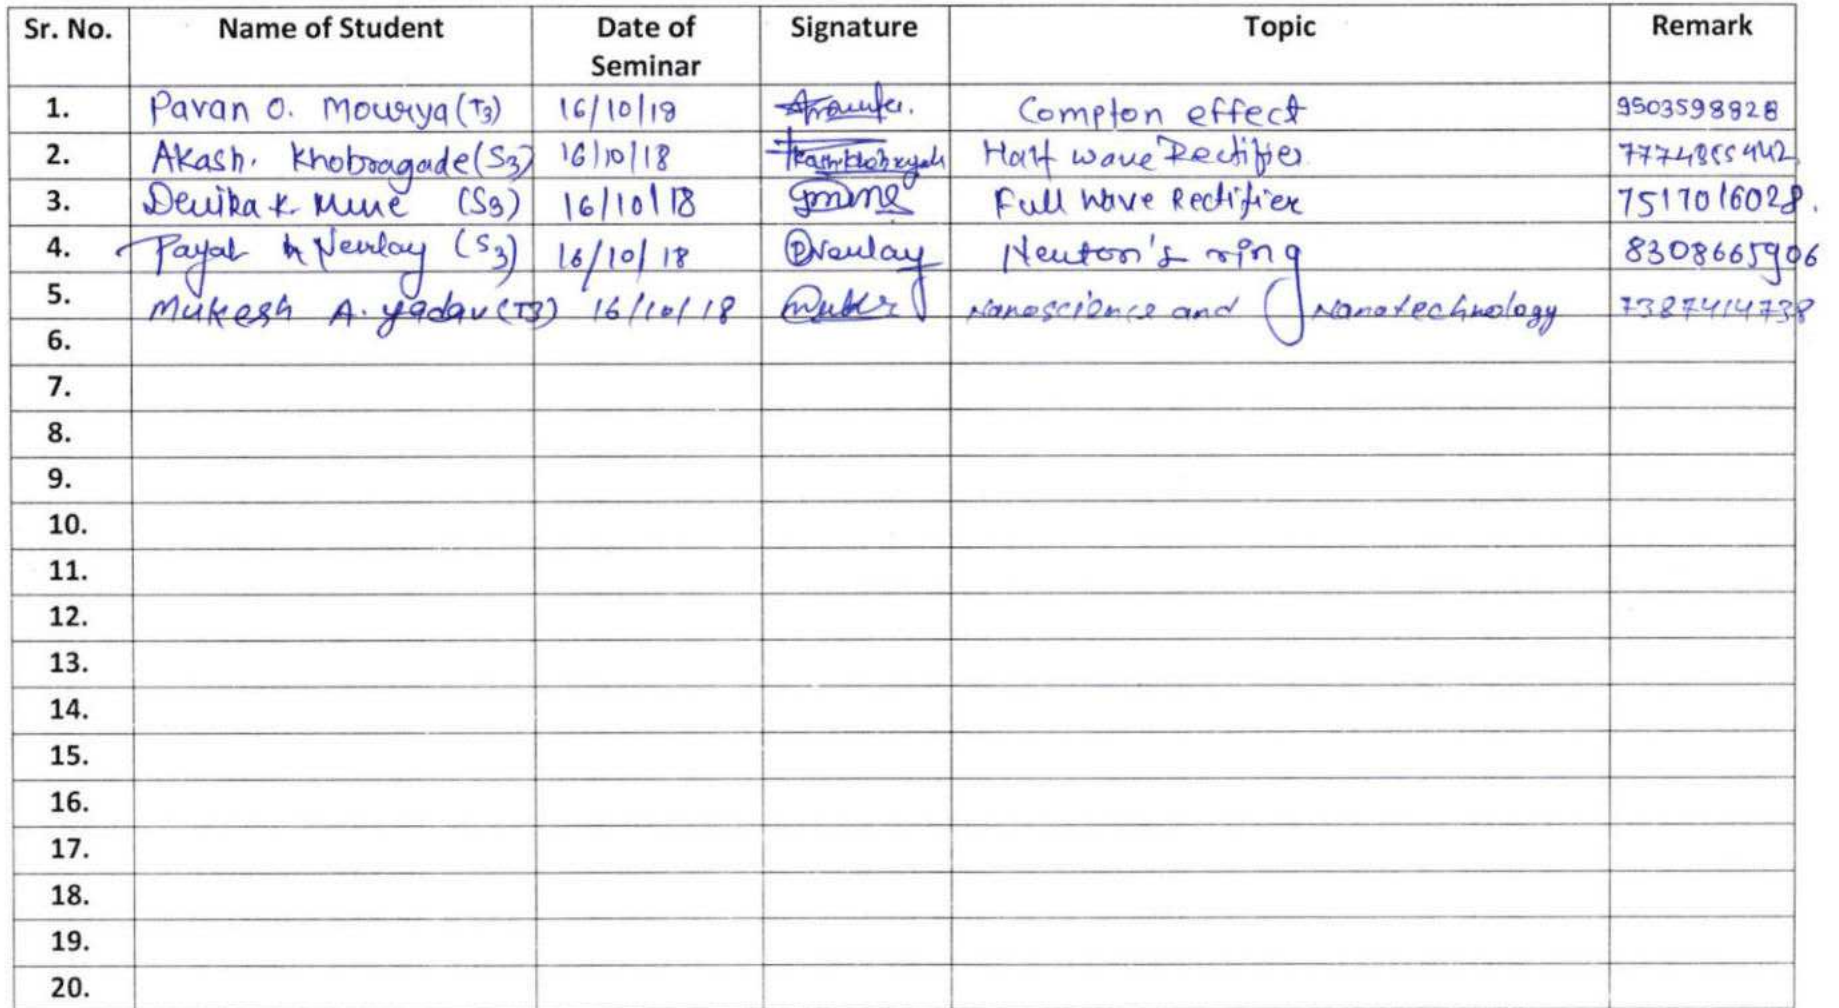 Sr. No. Name of Student Date of Seminar Signature Topic Remark
1. Pavan O. Mourya (T3) 16/10/18 Compton effect 9503598828
2. Akash. Khobragade (S3) 16/10/18 Half wave Rectifier
3. Devika K. Mune (S3) 16/10/18 Full wave Rectifier 7517016028.
4. Payal (S3) 16/10/18 Newton's ring 8308665906
5. Mukesh A. yadav (T3) 16/10/18 Nanoscience and Nanotechnology 7387414738
6.
7.
8.
9.
10.
11.
12.
13.
14.
15.
16.
17.
18.
19.
20.